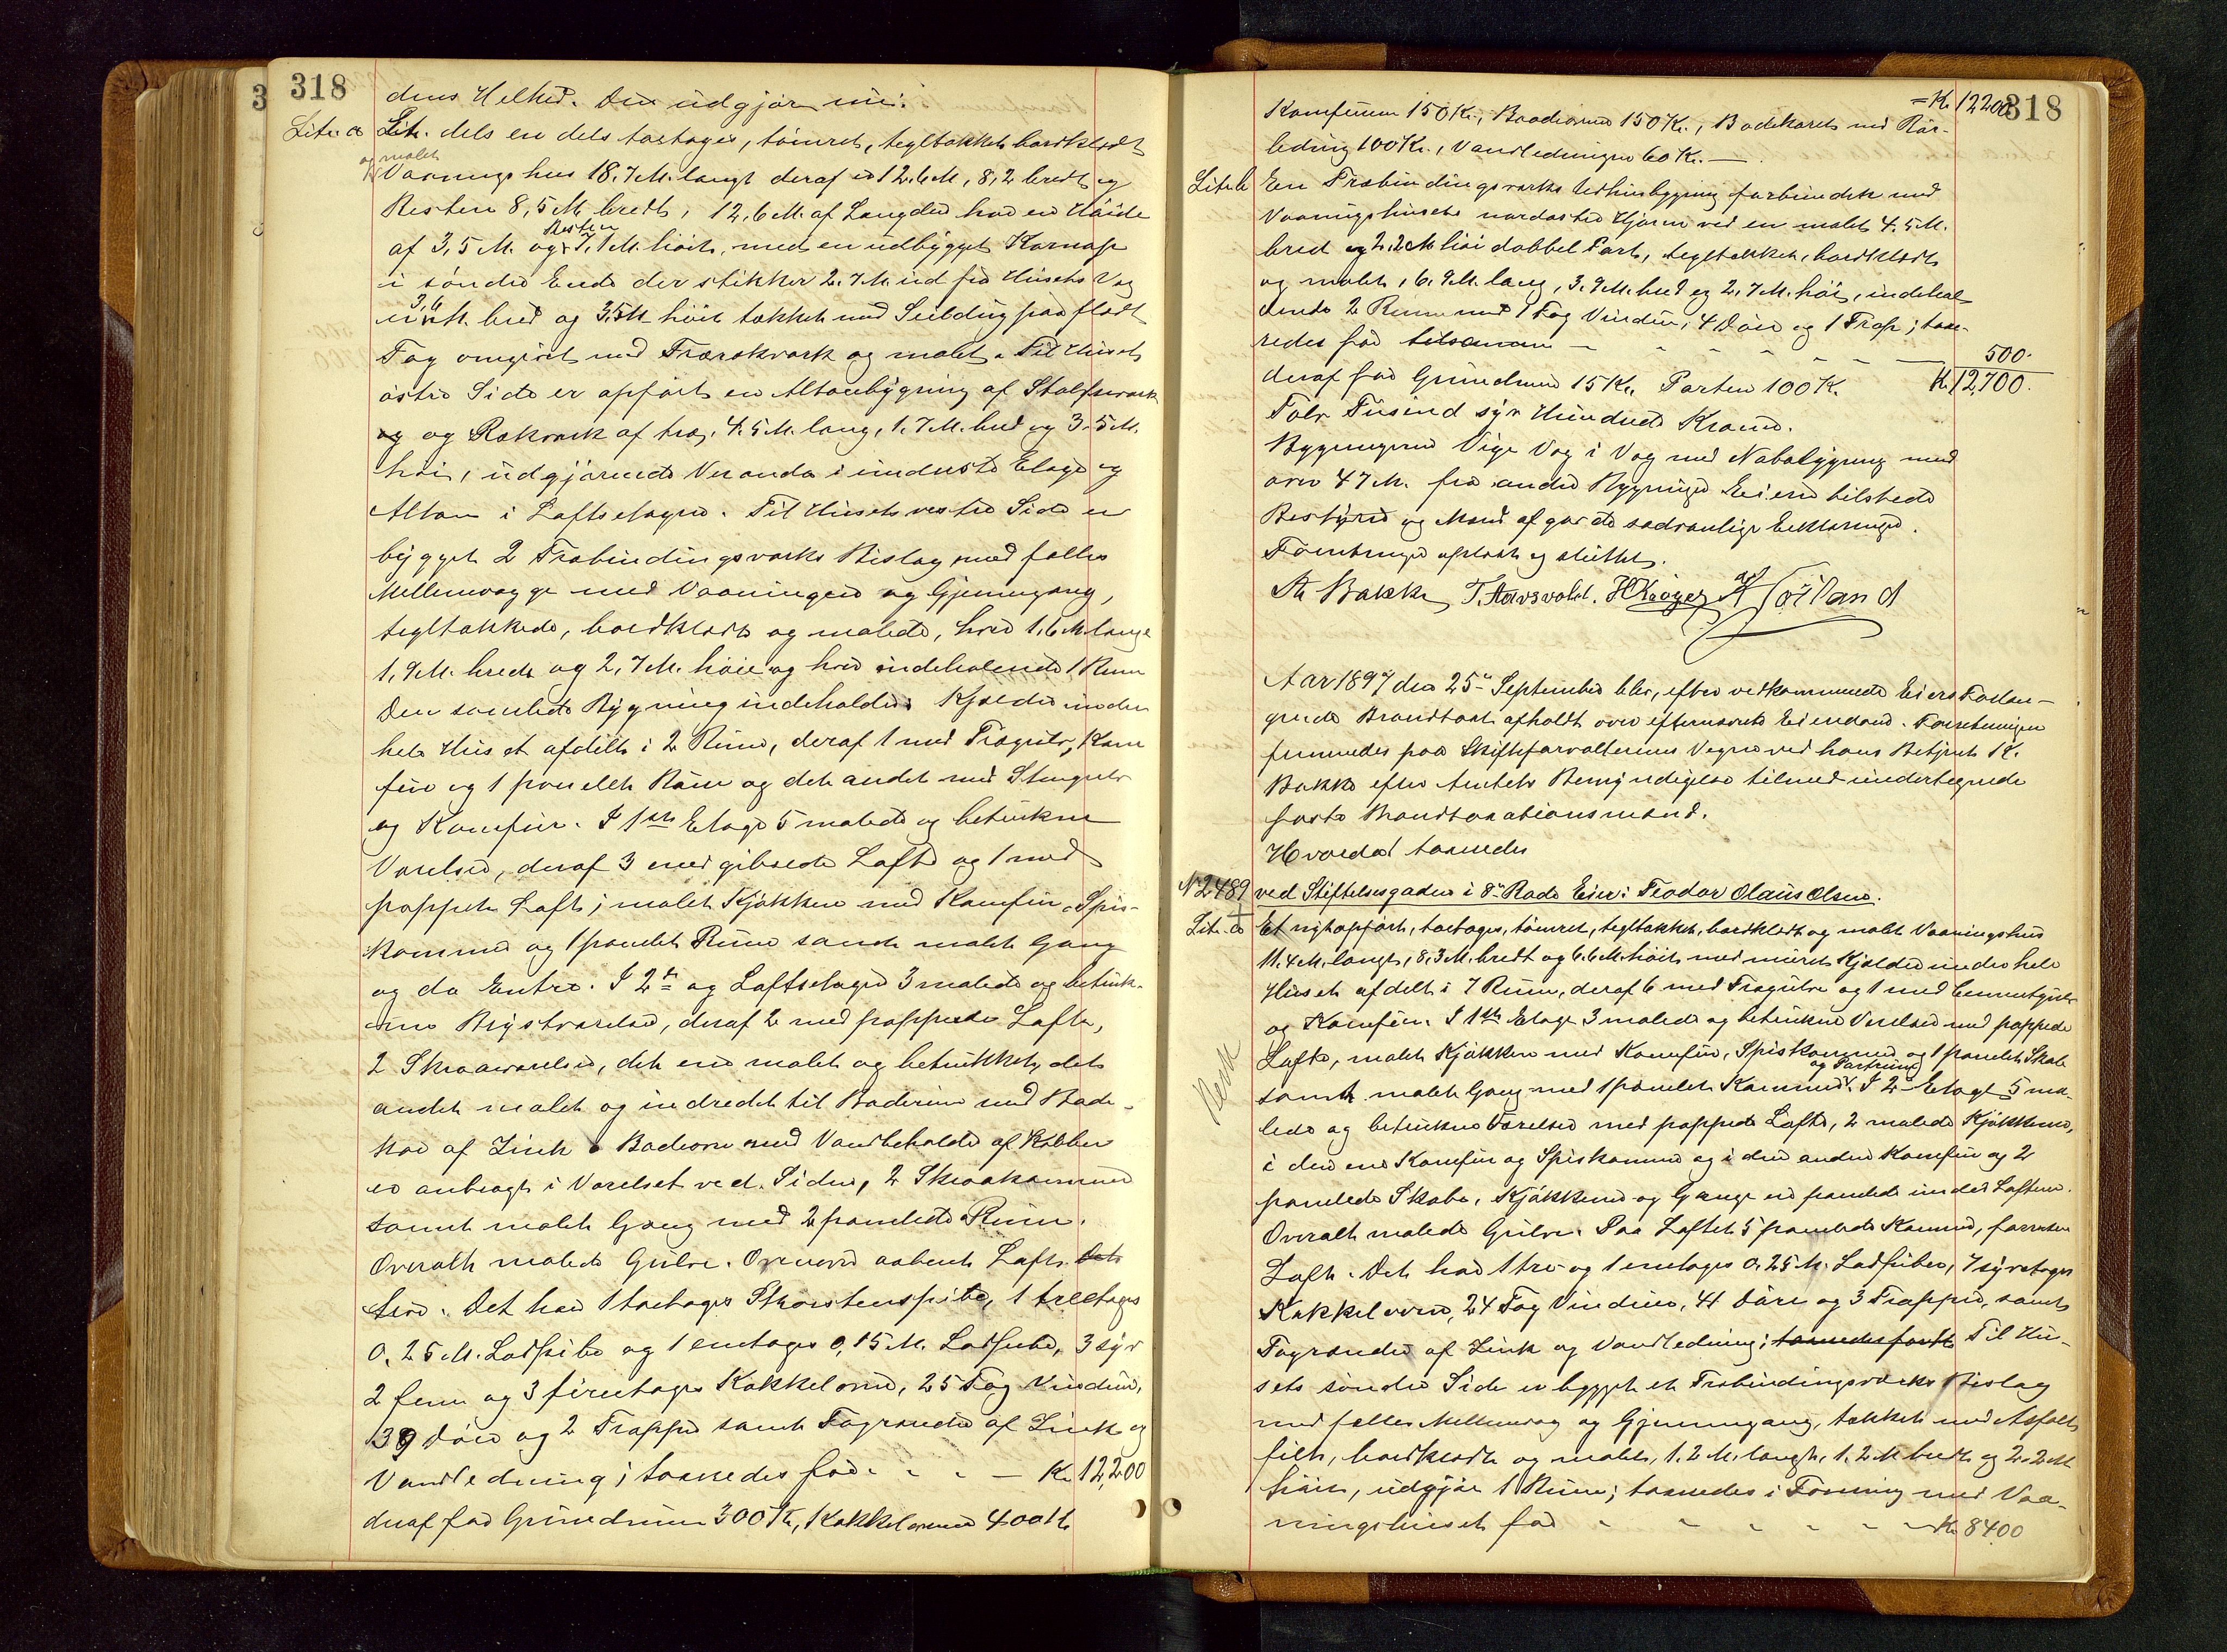 318
dens Helhed. Den udgjør nu:
Litr. a Litr. dels en dels toetages, tømret, tegltækket bordklædt
og malet
Vaaningshus 18.7 M. langt deraf er 12.6 M, 8,2 bredt og
Resten 8,5 M. bredt, 12,6 M. af Længden har en Høide
Resten
af 3,5 M. og 7,1 M. høit, med en udbygget Karnap
i søndre Ende der stikker 2.7 M. ud fra Husets Væg
3,6
M. bred og 3,5 M høit tækket med paa fladt
Tag omgivet med Træræckværk og malet. Til Husets
østre Side er opført en Altanbygning af Stolpeværk
og og Rækværk af træ, 4.5 M. lang, 1.7 M. bred og 3.5 M.
høi, udgjørende Veranda i underste Etage og
Altan i Loftsetagen. Til Husets vestre Side er
bygget 2 Træbindingsværks Bislag med fælles
Mellemvægge med Vaaningen og Gjennemgang,
tegltækkede, bordklædte og malede, hver 1,6 M. lange
1,9 M. brede og 2,7 M. høie og hver indeholdende 1 Rum
Den samlede Bygning indeholder: Kjælder under
hele Huset afdelt i 2 Rum, deraf 1 med Trægulv, Kom
fur og 1 panelet Rum og det andet med Stengulv
og Komfur. I 1ste Etage 5 malede og betrukne
Værelser, deraf 3 med gibsede Lofte og 1 med
pappet Loft; malet Kjøkken med Komfur, Spis-
kammer og 1 panelet Rum samt malet Gang
og do Entre. I 2den og Loftsetagen 3 malede og betruk-
ne Kvistværelser, deraf 2 med pappede Lofte,
2 Skraaværelser, det ene malet og betrukket, det
andet malet og indredet til Baderum med Bade-
kar af Zink & Badeovn med Vandbeholder af Kobber
er anbragt i Værelset ved Siden, 2 Skraakammer
samt malet Gang med 2 panelede Rum.
Overalt malede Gulve. Ovenover aabent Loft. Det
Det har 1 toetages Skorstenspibe, 1 treetages
0.25 M. Lodpibe og 1 enetages 0,15 M. Lodpibe, 3 syv
2 fem og 3 fireetages Kakkelovne, 25 Fag Vinduer,
39 Døre og 2 Trapper samt Tagrender af Zink og
Vandledning; taxeredes for - - - Kr 12,200
deraf for Grundmur 300 Kr, Kakkelovne 400 Kr
= Kr 12200
318
Komfurer 150 Kr., Baadeovn 150 Kr., Badekaret med Rør-
ledning 100 Kr., Vandledningen 60 Kr. —
Litr. b En Træbindingsværks Udhusbygning forbundet med
Vaaningshusets nordøstre Hjørne ved en malet 4.5 M.
bred og 2.2 M høi dobbel Port, tegltækket, bordklædt
og malet, 6.9 M. lang, 3.9 M. bred og 2,7 M. høi, indehol
dende 2 Rum med 1 Fag Vinduer, 4 Døre og 1 Trap; taxe-
redes for tilsammen - - - - - - 500.
deraf for Grundmur 15 Kr., Porten 100 Kr. Kr 12,700.
Tolv Tusind syv Hundrede Kroner.
Bygningerne Vige Væg i Væg med Nabobygning med
over 47 M. fra andre Bygninger Eieren tilstede
Bestyrer og Mænd afgav de sædvanlige Erklæringer.
Forretningen oplæst og sluttet.
Th Bakke T. Aarsvold. H Krøyer AA Søiland
Aar 1897 den 25de September blev, efter vedkommende Eiers Forlan-
gende Brandtaxt afholdt over efternævnte Eiendomme. Forretningen
fremmedes paa Skifteforvalterens Vegne ved hans Betjent Th.
Bakke efter Amtets Bemyndigelse tilmed undertegnede
faste Brandtaxationsmænd.
Hvorda taxeredes
No 2489 ved Stiftelsesgaden i 8de Rode Eier: Teodor Olaus Olsen.
Litr. a Et nyt opført, toetages, tømret, tegltækket, bordklædt og malet Vaaningshus
11.4 M. langt, 8,3 M. bredt og 6.6 M. høit med muret Kjælder under hele
Huset afdelt i 7 Rum, deraf 6 med Trægulv og 1 med Cementgulv
og Komfur. I 1ste Etage 3 malede og betrukne Værelser med pappede
Lofte, malet Kjøkken med Komfur, Spiskammer og 1 panelet Skab
og Portrum
samt malet Gang med 1 panelet Kammer. I 2den Etage 5 ma-
lede og betrukne Værelser med pappede Lofte, 2 malede Kjøkkener,
i den ene Komfur og Spiskammer og i den anden Komfur og 2
panelede Skabe. Kjøkkener og Gange er panelede under Loftene.
Overalt malede Gulve. Paa Loftet 5 panelede Kammer, forresten
Loft. Det har 1 tre- og 1 enetages 0.25 M. Lodpiber, 7 syvetages
Kakkelovne, 24 Fag Vinduer, 41 Døre og 3 Trapper, samt
Tagrender af Zink og Vandledning; taxeredes for Til Hu-
sets søndre Side er bygget et Træbindingsværks Bislag
med fælles Mellemvæg og Gjennemgang, tækket med Asfalt
filt, bordklædt og malet, 1.2 M. langt, 1.2 M bredt og 2.2 M
høit, udgjør 1 Rum; taxeredes i Forening med Vaa-
ningshuset for - - - - - - Kr 8400